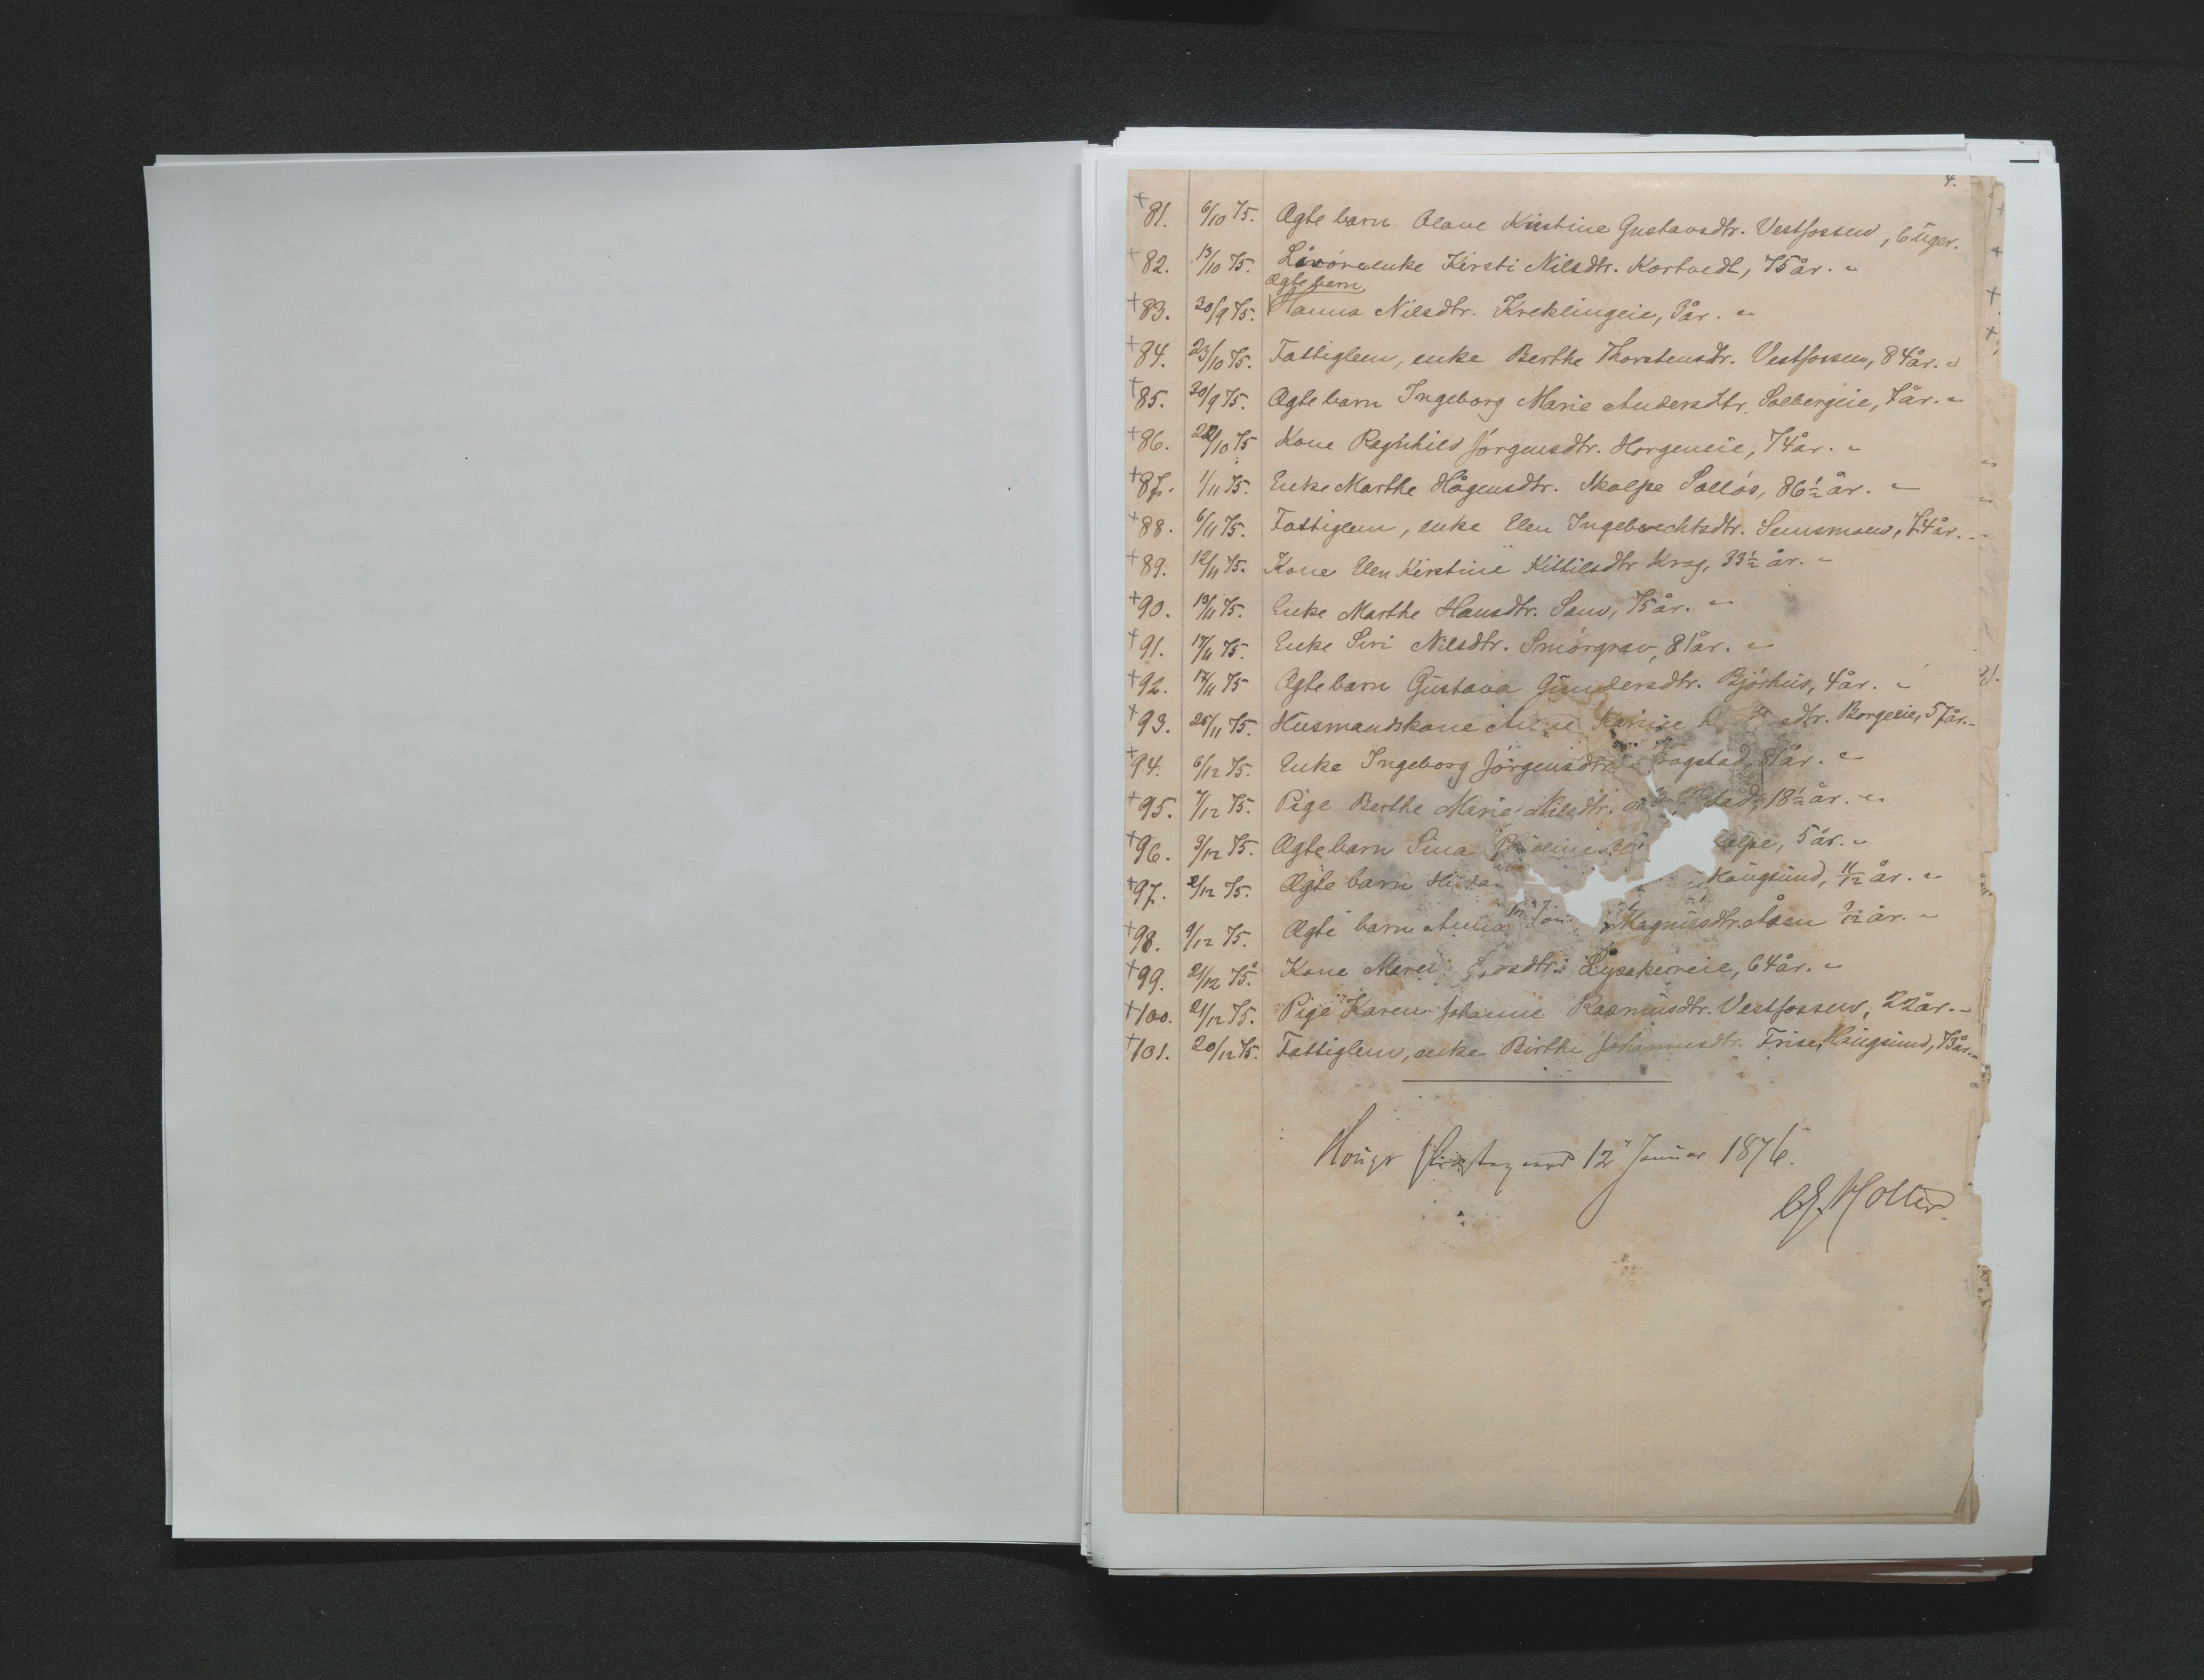 4.
+81. 6/10 75. Ægte barn Olave Kristine Gustavsdtr. Vestfossen, 6 uger.
+82. 13/10 75. Livøreenke Kirsti Nilsdtr. Kortvedt, 75 år. "
Ægte barn
+83. 30/9 75. Hanna Nilsdtr. Kreklingeie, 3 år. "
+84. 23/10 75. Fattiglem, enke Berthe Thorstensdtr. Vestfossen, 84 år. "
+85. 30/9 75. Ægte barn Ingeborg Marie Andersdtr. Solbergeie, 7 år. "
+86. /10 75 Kone Ragnhild Jörgensdtr. Horgeneie, 74 år. "
+87. 1/11 75. Enke Marthe Hågensdtr. Skalpe Sollös, 86 1/2 år. "
+88. 6/11 75. Fattiglem, enke Elen Ingebrechtsdtr. Semsmoen, 74 år. "
+89. 12/11 75. Kone Elen Kirstine Kittilsdtr. Krag, 33 1/2 år. "
+90. 13/11 75. Enke Marthe Hansdtr. Sand, 75 år. "
+91. 17/11 75. Enke Siri Nilsdtr. Smörgrav, 81 år. "
+92. 17/11 75 Ægte barn Gustava Gundersdtr. Björhus, 4 år. "
+93. 25/11 75. Husmandskone Karine sdtr. Borgeeie, 57 år. "
+94. 6/12 75. Enke Ingeborg Jörgensdtr. rogstad, 81 år. "
+95. 7/12 75. Pige Berthe Marie Nilsdtr. stad, 18 1/2 år. "
+96. 3/12 75. Ægte barn Sina alpe, 5 år. "
+97. 2/12 75. Ægte barn Hougsund, 11/12 år. "
+98. 9/12 75. Ægte barn Anna Magnusdtr. Åsen 9/12 år. "
+99. 21/12 75. Kone Maren Larsdtr. Lysakereie, 64 år. "
+100. 21/12 75. Pige Karen Johanne Rasmusdtr. Vestfossen, 22 år. "
+101. 20/12 75. Fattiglem, enke Birthe Johannesdtr. Frise, Hougsund, 73 år. "
Hougs Præstegaard 12 Januar 1876.
Holter